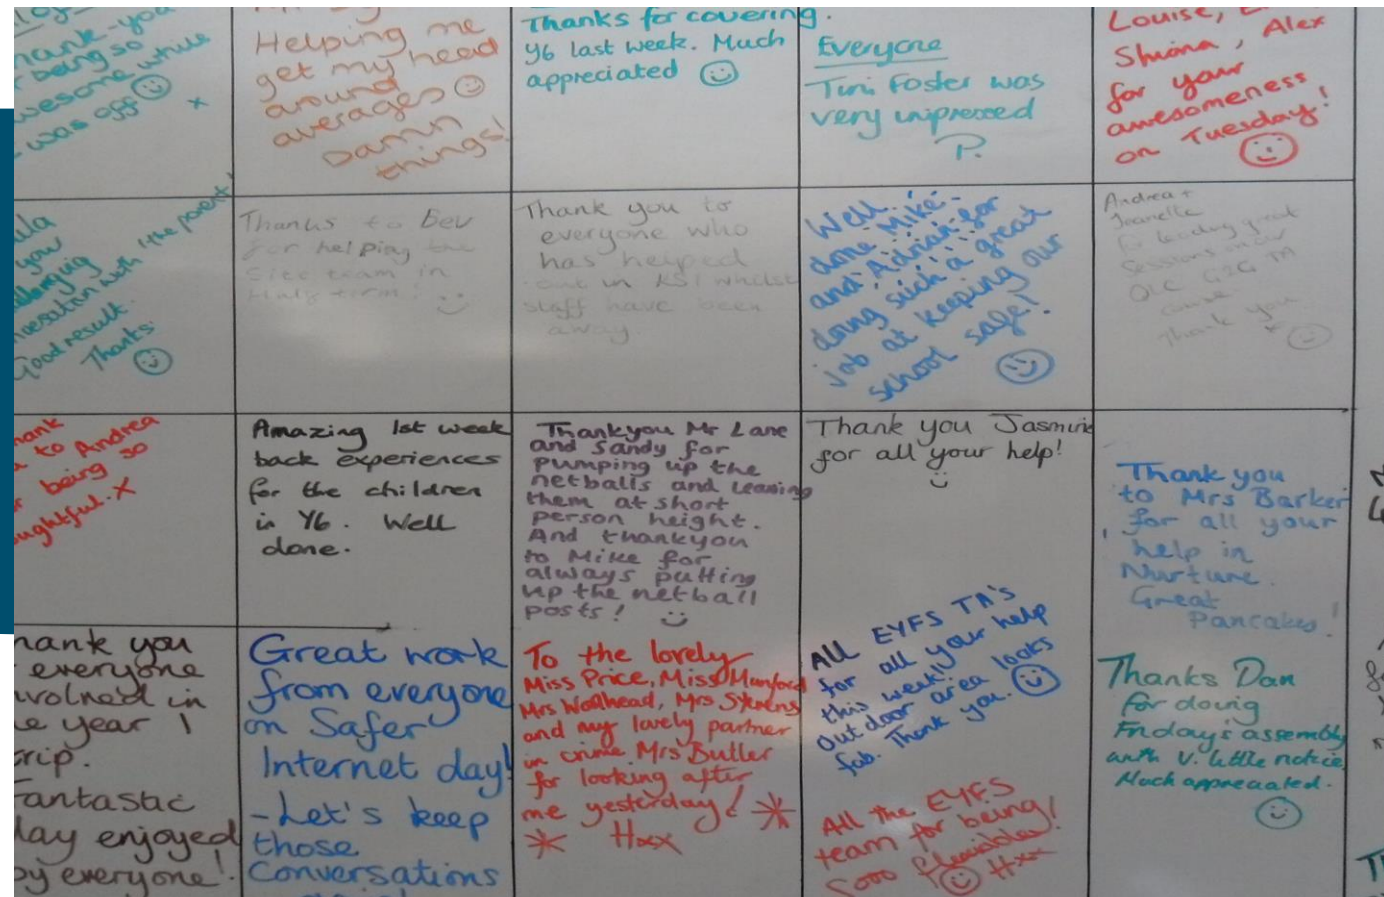 hank-you
being so
awesome while
was off
x
Helping me
get my head
around
averages
Damn
things!
Thanks for covering.
Y6 last week. Much
appreciated
Everyone
Tim Foster was
very impressed
P.
Louise,
Shiona, Alex
for your
awesomeness
on Tuesday!
ula
you
conversation with the parent!
Good result.
Thanks.
Thanks to Bev
for helping the
site team in
Half term!
Thank you to
everyone who
has helped
out in KS1 whilst
staff have been
away.
Well
done Mike
and Adrian for
doing such a great
job at keeping our
school safe!
Andrea +
Jeanette
for leading great
sessions on our
Thank you
hank
to Andrea
r being so
oughtful.x
Amazing 1st week
back experiences
for the children
in Y6. Well
done.
Thankyou Mr Lane
and Sandy for
pumping up the
netballs and leaving
them at short
person height.
And thankyou
to Mike for
always putting
up the netball
posts!
Thank you Jasmine
for all your help!
Thank you
to Mrs Barker
for all your
help in
Nurture.
Great
Pancakes!
hank you
everyone
nvolved in
e year 1
trip.
antastic
day enjoyed
by everyone!
Great work
from everyone
on Safer
Internet day!
- Let's keep
those
Conversations
To the lovely
Miss Price, Miss Mumford
Mrs Woolhead, Mrs Stevens
and my lovely partner
in crime Mrs Butler
for looking after
me yesterday!
Hxx
All EYFS TA's
for all your help
this week! your
outdoor area looks
fab. Thank you.
All the EYFS
team for being
sooo flexible!
Hxx
Thanks Dan
for doing
Friday's assembly
with v. little notice
Much appreciated.